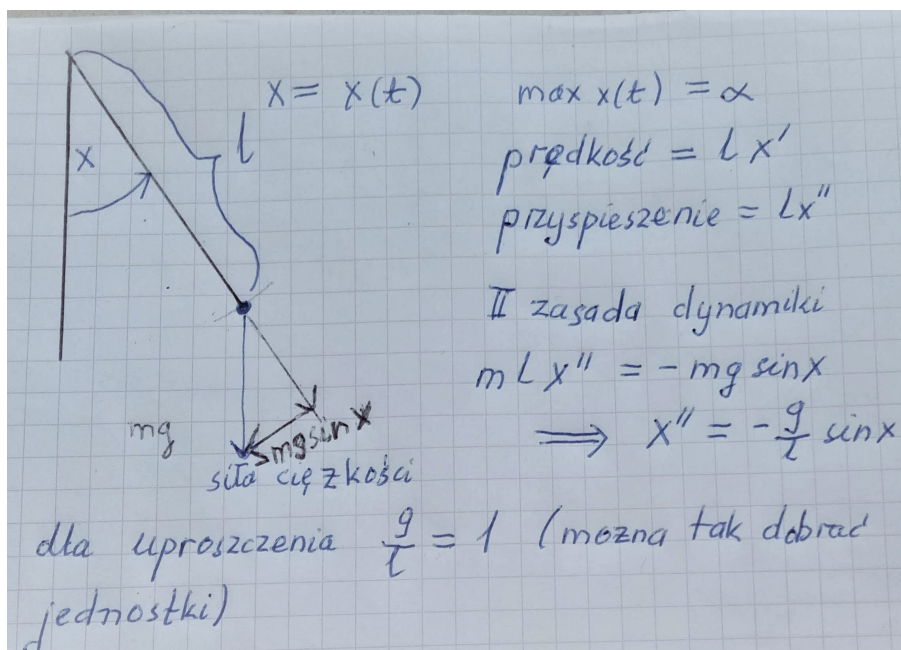 x = x(t)
max x(t) = α
l
x
prędkość = l x'
przyspieszenie = l x''
II zasada dynamiki
m l x'' = - mg sin x
⟹ x'' = - g/l sin x
mg
mg sin x
siła ciężkości
dla uproszczenia g/l = 1 (mozna tak dobrać
jednostki)